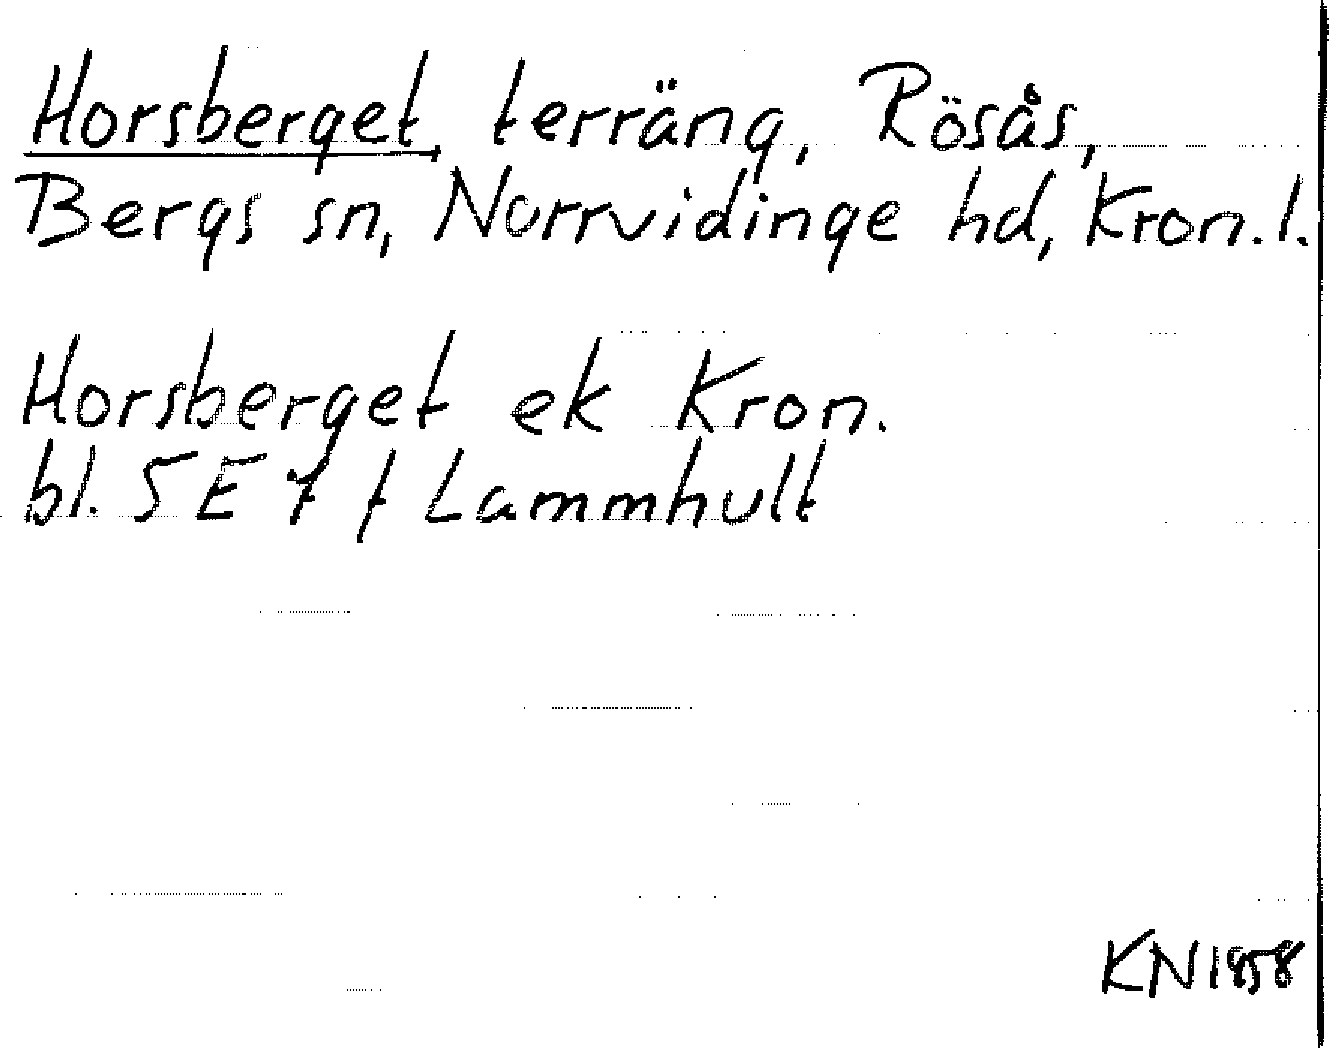 Horsberget, terräng, Rösås,
Bergs sn, Norrvidinge hd, Kron.l.
Horsberget ek Kron.
bl. 5 E 7 f Lammhult
KN 1858